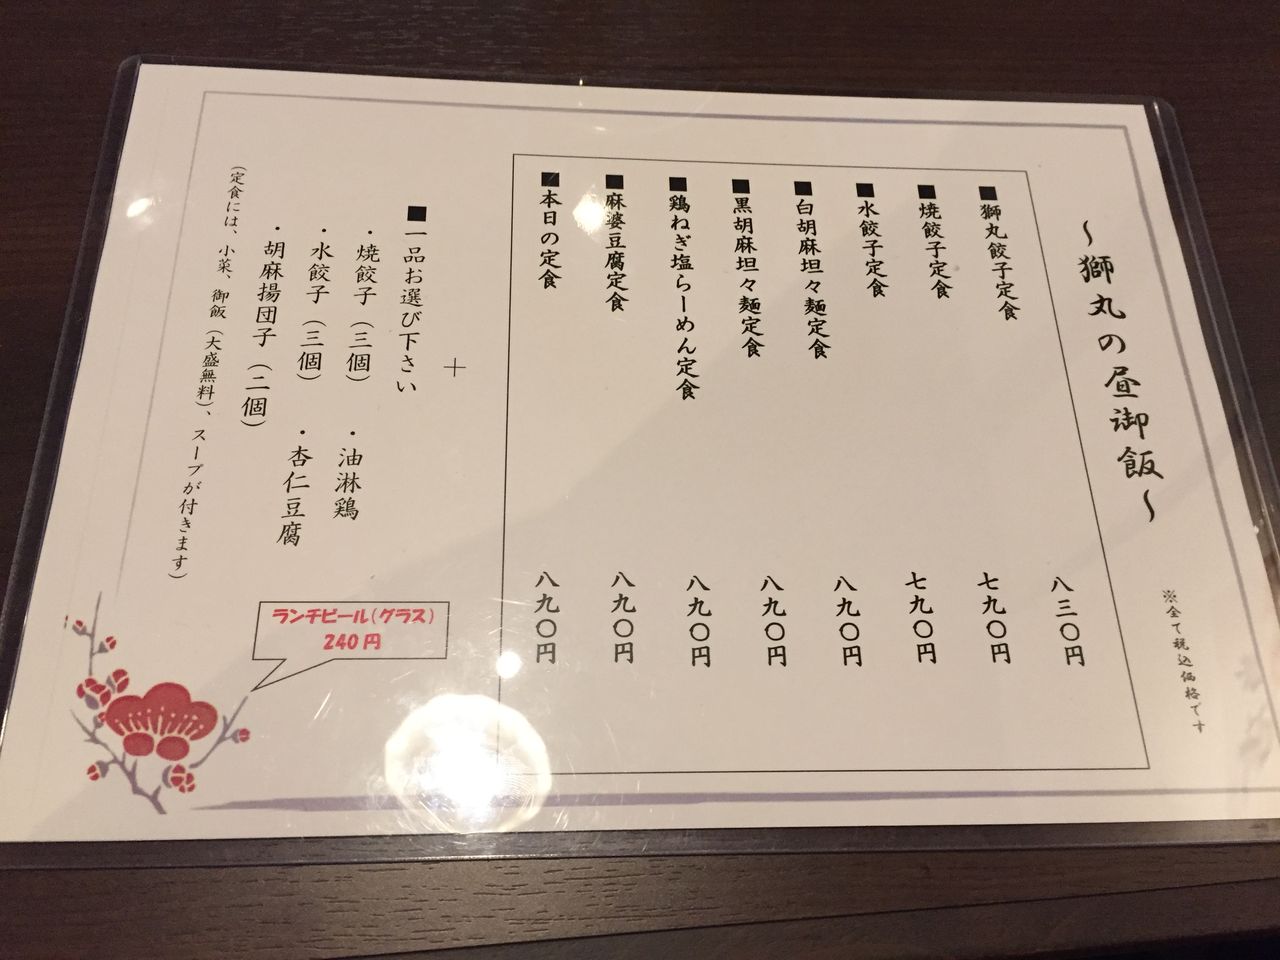 ～獅丸の昼御飯～
※全て税込価格です
■獅丸餃子定食 八三〇円
■焼餃子定食 七九〇円
■水餃子定食 七九〇円
■白胡麻坦々麵定食 八九〇円
■黒胡麻坦々麵定食 八九〇円
■鶏ねぎ塩らーめん定食 八九〇円
■麻婆豆腐定食 八九〇円
■本日の定食 八九〇円
＋
■一品お選び下さい
・焼餃子（三個） ・油淋鶏
・水餃子（三個） ・杏仁豆腐
・胡麻揚団子（二個）
（定食には、小菜、御飯（大盛無料）、スープが付きます）
ランチビール(グラス)
240円